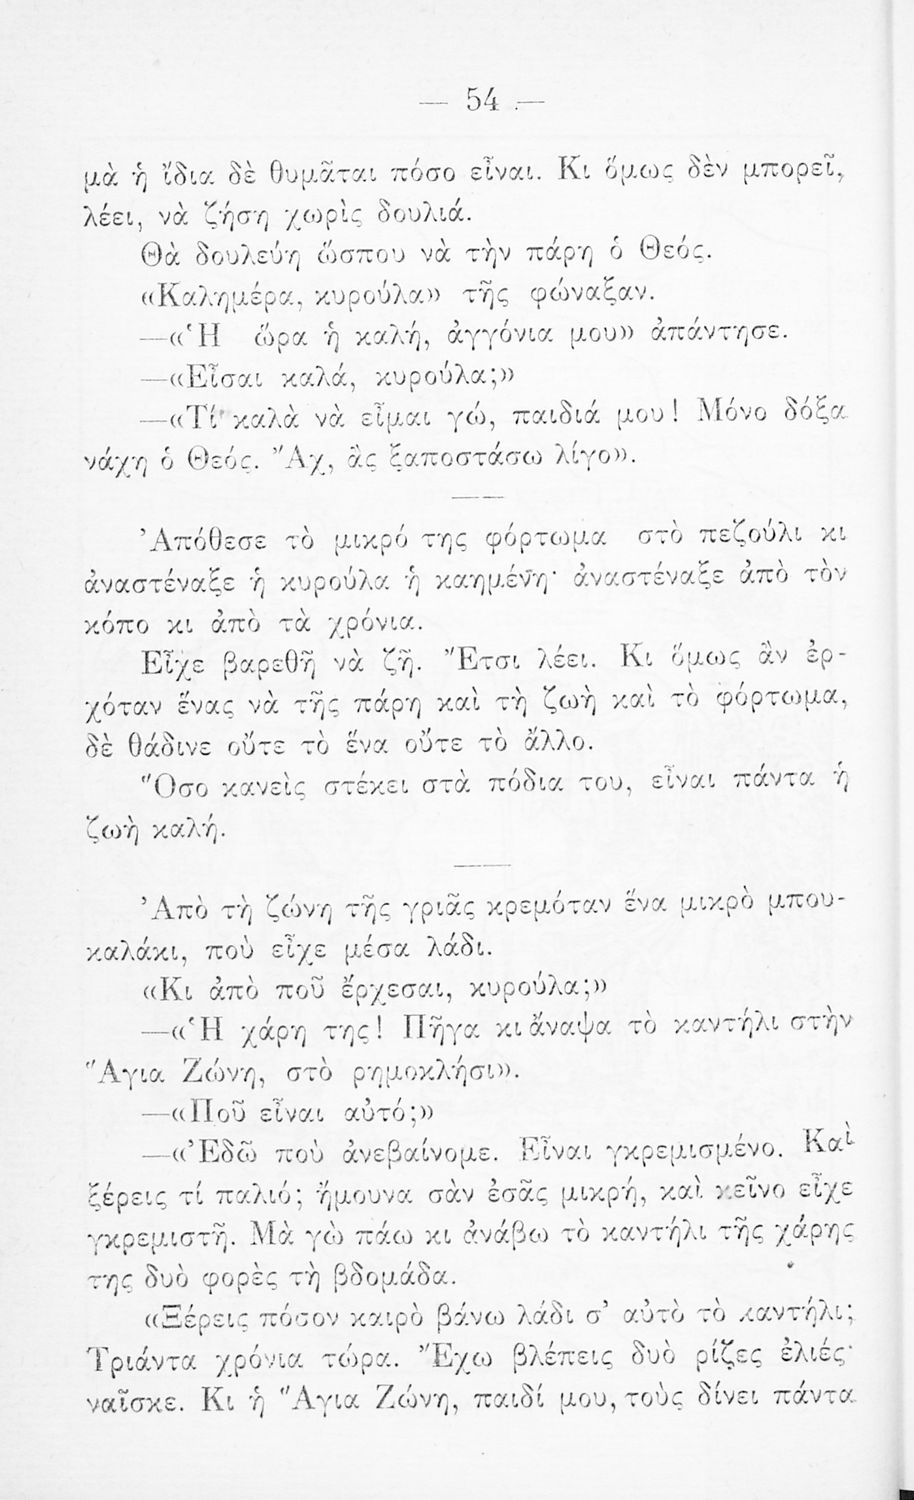 — 54 —
μὰ ἡ ἴδια δὲ θυμᾶται πόσο εἶναι. Κι ὅμως δὲν μπορεῖ,
λέει, νὰ ζήση χωρὶς δουλιά.
Θὰ δουλεύη ὥσπου νὰ τὴν πάρη ὁ Θεός.
«Καλημέρα, κυρούλα» τῆς φώναξαν.
—«Ἡ ὥρα ἡ καλή, ἀγγόνια μου» ἀπάντησε.
—«Εἶσαι καλά, κυρούλα;»
—«Τί καλὰ νὰ εἶμαι γώ, παιδιά μου! Μόνο δόξα
νάχη ὁ Θεός. Ἄχ, ἂς ξαποστάσω λίγο».
Ἀπόθεσε τὸ μικρό της φόρτωμα στὸ πεζούλι κι
ἀναστέναξε ἡ κυρούλα ἡ καημένη· ἀναστέναξε ἀπὸ τὸν
κόπο κι ἀπὸ τὰ χρόνια.
Εἶχε βαρεθῆ νὰ ζῆ. Ἔτσι λέει. Κι ὅμως ἂν ἐρ-
χόταν ἕνας νὰ τῆς πάρη καὶ τὴ ζωὴ καὶ τὸ φόρτωμα,
δὲ θάδινε οὔτε τὸ ἕνα οὔτε τὸ ἄλλο.
Ὅσο κανεὶς στέκει στὰ πόδια του, εἶναι πάντα ἡ
ζωὴ καλή.
Ἀπὸ τὴ ζώνη τῆς γριᾶς κρεμόταν ἕνα μικρὸ μπου-
καλάκι, ποὺ εἶχε μέσα λάδι.
«Κι ἀπὸ ποῦ ἔρχεσαι, κυρούλα;»
—«Ἡ χάρη της! Πῆγα κι ἄναψα τὸ καντήλι στὴν
Ἅγια Ζώνη, στὸ ρημοκλήσι».
—«Ποῦ εἶναι αὐτό;»
—«Ἐδῶ ποὺ ἀνεβαίνομε. Εἶναι γκρεμισμένο. Καὶ
ξέρεις τί παλιό; ἤμουνα σὰν ἐσᾶς μικρή, καὶ κεῖνο εἶχε
γκρεμιστῆ. Μὰ γὼ πάω κι ἀνάβω τὸ καντήλι τῆς χάρης
της δυὸ φορὲς τὴ βδομάδα.
«Ξέρεις πόσον καιρὸ βάνω λάδι σ' αὐτὸ τὸ καντήλι;
Τριάντα χρόνια τώρα. Ἔχω βλέπεις δυὸ ρίζες ἐλιές·
ναῖσκε. Κι ἡ Ἅγια Ζώνη, παιδί μου, τοὺς δίνει πάντα